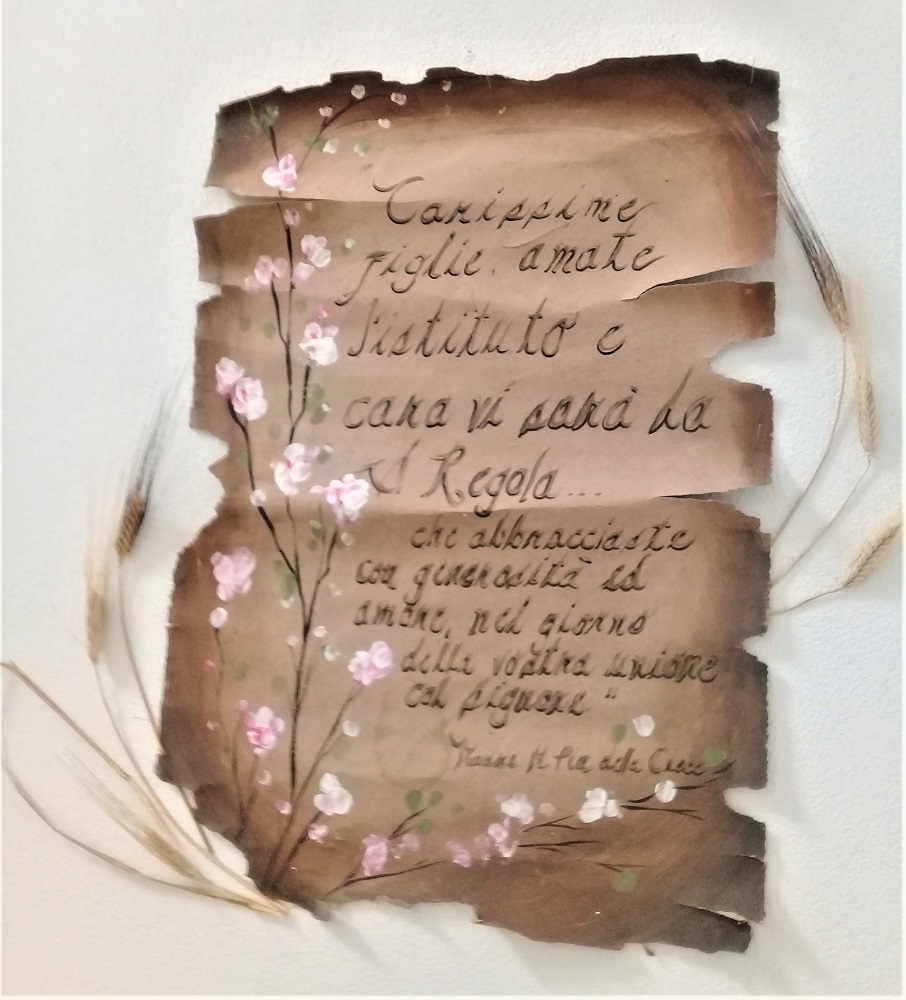 Carissime
figlie, amate
l'istituto e
cara vi sarà la
S. Regola...
che abbracciaste
con generosità ed
amore, nel giorno
della vostra unione
col signore"
Madre M. Pia della Croce